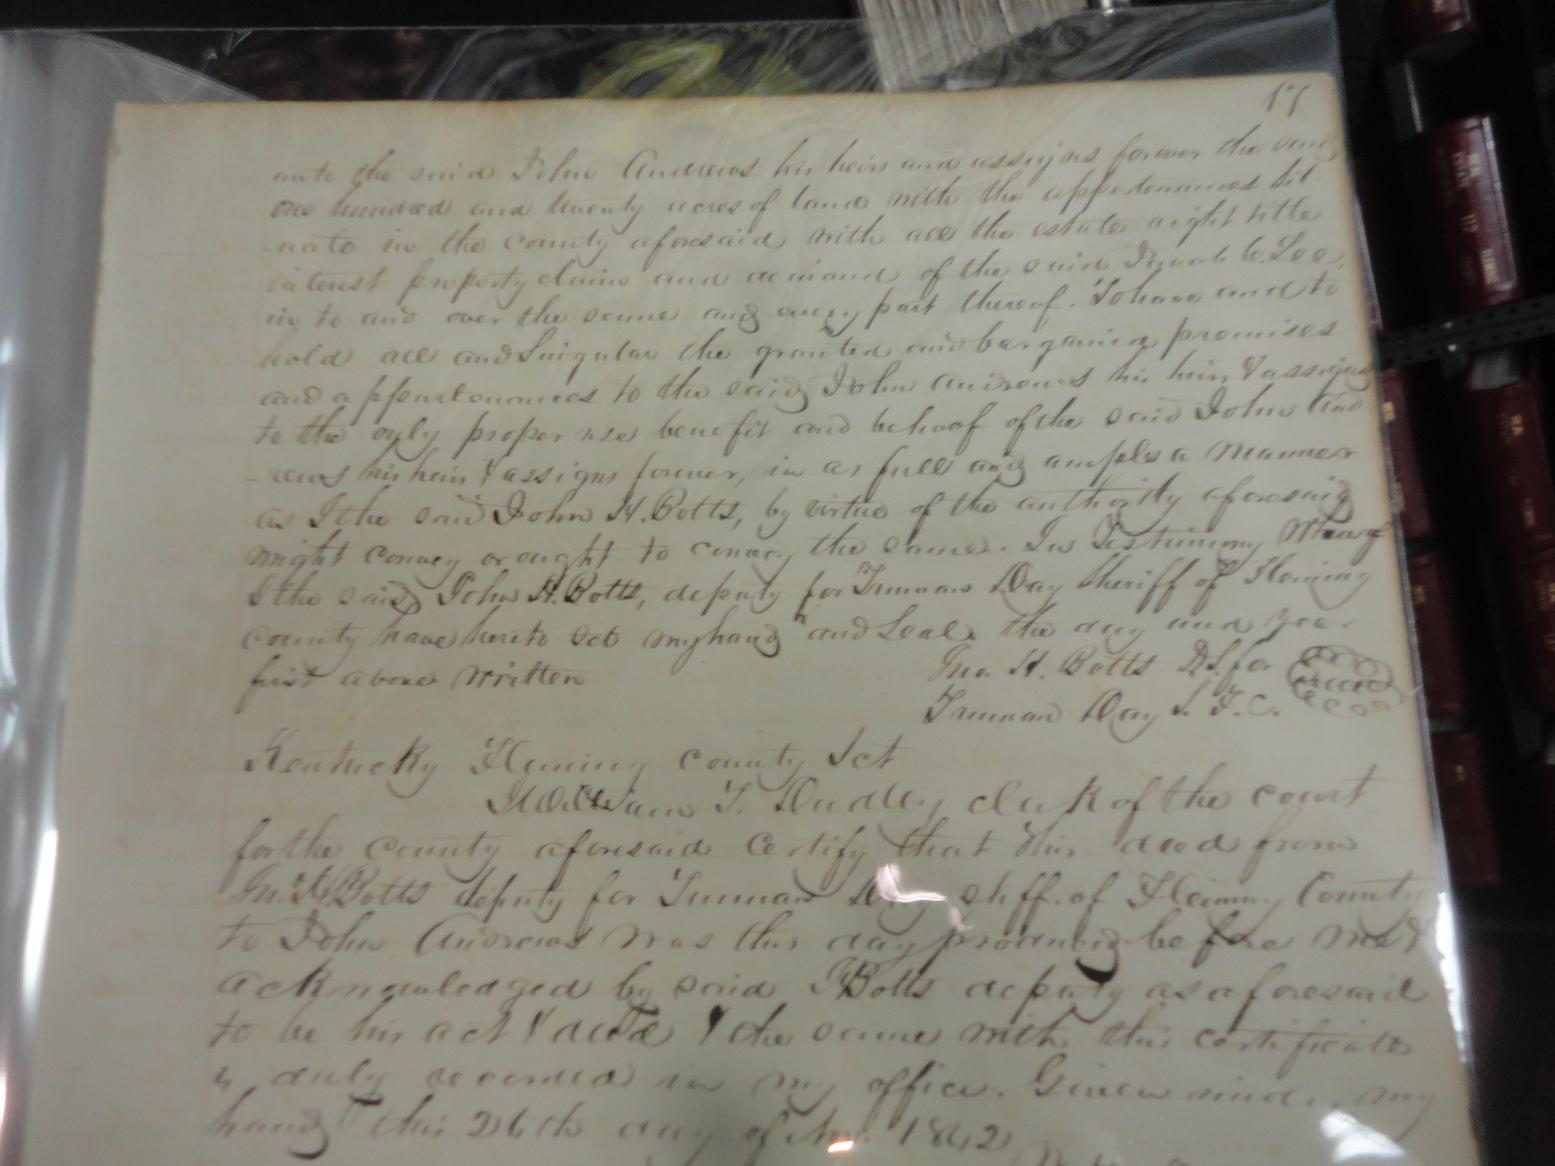 17
unto the said John Andrews his heirs and assigns forever the said
one hundred and twenty acres of land with the appertenances sit
-uate in the county aforesaid with all the estate right title
interest property claim and demand of the said Lee
in to and over the same and every part thereof. To have and to
hold all and Singular the granted and bargained premises
and appurtenances to the said John Andrews his heirs & assigns
to the only proper use benefit and behoof of the said John And
-rews his heirs & assigns forever, in as full and ample a manner
as I the said John H. Botts, by virtue of the authority aforesaid
might convey or ought to convey the same. In Testimony Whereof
I the said John H. Botts, deputy for Truman Day Sheriff of Fleming
county have hereto set my hand and Seal. the day and year
first above written
Jno. H. Botts D.S. for
Truman Day S. F. C.
Kentucky Fleming County Sct
I William T. Dudley clerk of the court
for the county aforesaid certify that this deed from
Jno. H Botts deputy for Truman Day shff. of Fleming County
to John Andrews was this day produced before me &
acknowledged by said Botts deputy as aforesaid
to be his act & deed & the same with this certificate
is duly recorded in my office. Given under my
hand this 26th day of Nov. 1842